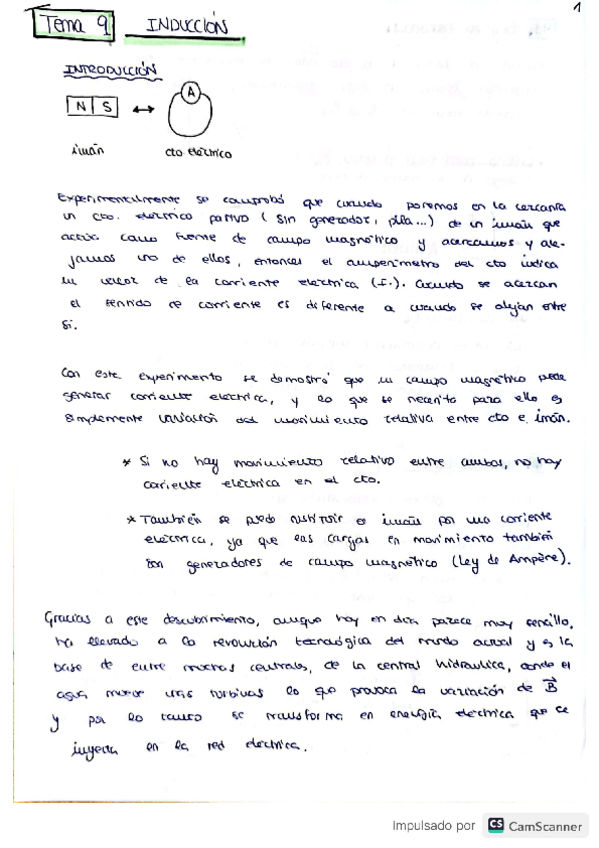 1
Tema 9 INDUCCIÓN
INTRODUCCIÓN
N S ↔ A
imán cto eléctrico
Experimentalmente se comprobó que cuando ponemos en la cercanía
un cto. eléctrico pasivo (sin generador, pila...) de un imán que
actúa como fuente de campo magnético y acercamos y ale-
jamos uno de ellos, entonces el amperímetro del cto indica
un valor de la corriente eléctrica (I). Cuando se acercan
el sentido de corriente es diferente a cuando se alejan entre
sí.
Con este experimento se demostró que un campo magnético puede
generar corriente eléctrica, y lo que se necesita para ello es
simplemente variación del movimiento relativa entre cto e imán.
* Si no hay movimiento relativo entre ambos, no hay
corriente eléctrica en el cto.
* También se puede sustituir el imán por una corriente
eléctrica, ya que las cargas en movimiento también
son generadores de campo magnético (Ley de Ampère).
Gracias a este descubrimiento, aunque hoy en día parece muy sencillo,
ha llevado a la revolución tecnológica del mundo actual y es la
base de entre muchas centrales, de la central hidraulica, donde el
agua mueve unas turbinas lo que provoca la variación de B⃗
y por lo tanto se transforma en energía eléctrica que se
inyecta en la red eléctrica.
Impulsado por CS CamScanner